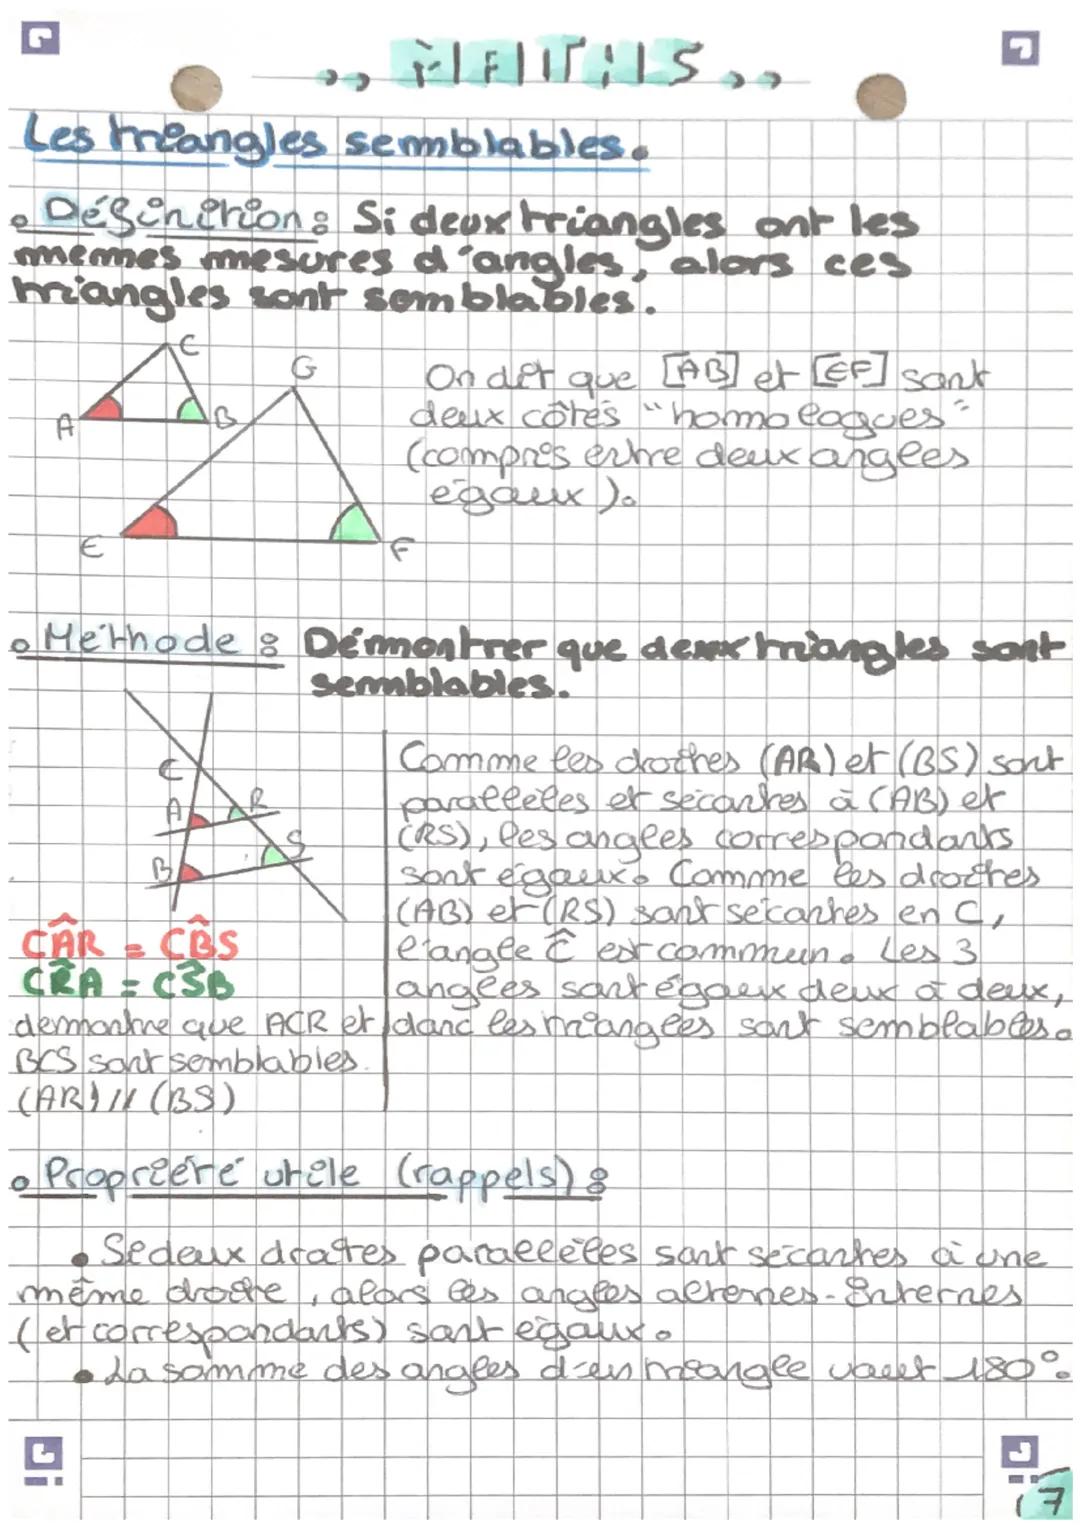 ,, MATHS ,,
Les triangles semblables.
• Définition : Si deux triangles ont les
mêmes mesures d'angles, alors ces
triangles sont semblables.
C
G
A
B
E
F
On dit que [AB] et [EF] sont
deux côtés "homologues"
(compris entre deux angles
égaux).
• Méthode : Démontrer que deux triangles sont
semblables.
C
A R
B S
CÂR = CB̂S
CR̂A = CŜB
démontre que ACR et
BCS sont semblables.
(AR) // (BS)
Comme les droites (AR) et (BS) sont
parallèles et sécantes à (AB) et
(RS), les angles correspondants
sont égaux. Comme les droites
(AB) et (RS) sont sécantes en C,
l'angle Ĉ est commun. Les 3
angles sont égaux deux à deux,
donc les triangles sont semblables.
• Propriété utile (rappels) :
• Si deux droites parallèles sont sécantes à une
même droite, alors les angles alternes-internes
(et correspondants) sont égaux.
• La somme des angles d'un triangle vaut 180°.
7